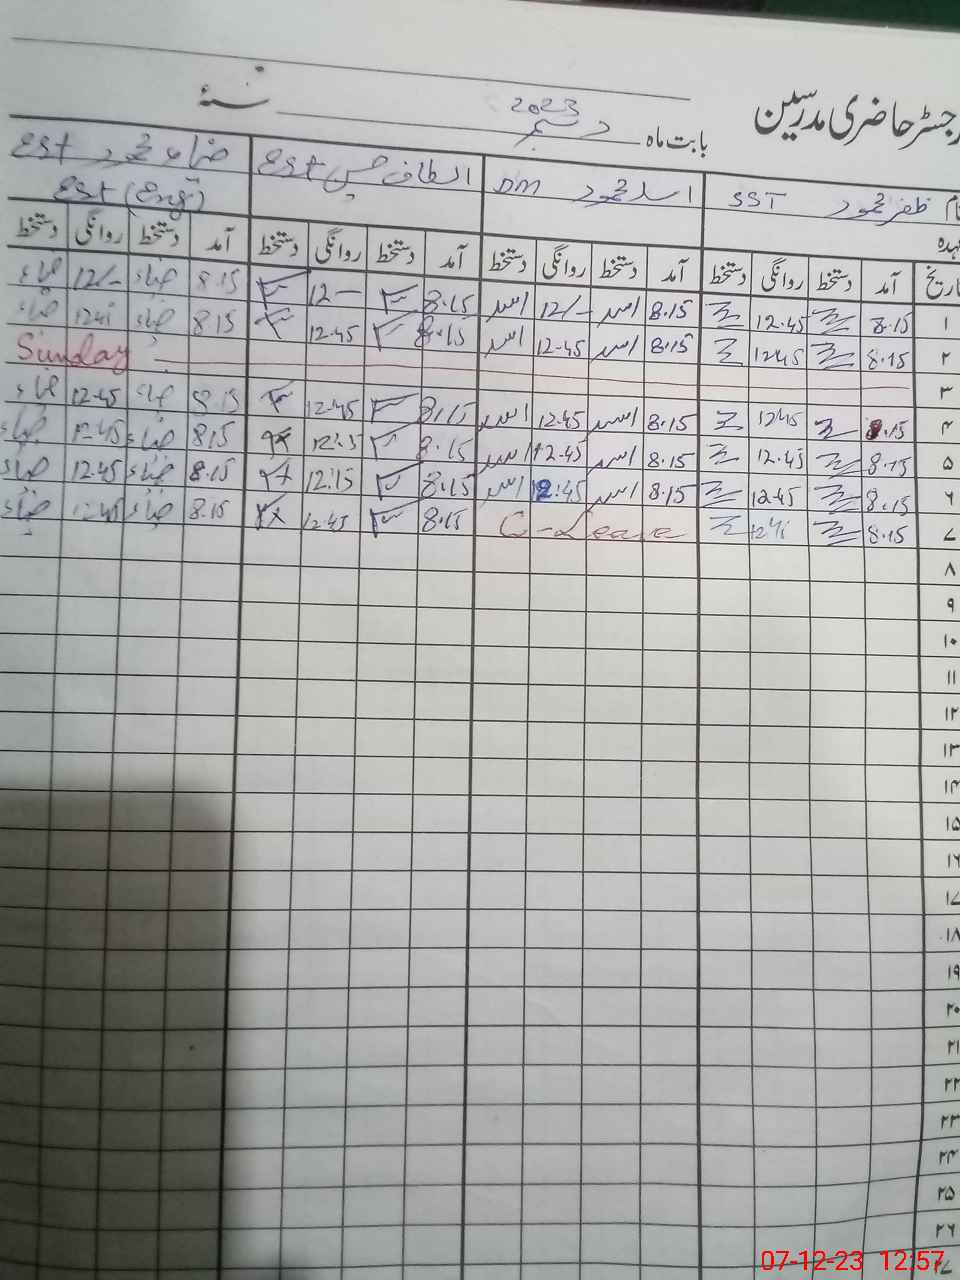 رجسٹر حاضری مدرسین بابت ماہ دسمبر 2023 سنۂ
نام ظفر محمود SST اسد محمود DM الطاف حسین EST ضیاء محمود EST
عہدہ EST (Eng)
تاریخ آمد دستخط روانگی دستخط آمد دستخط روانگی دستخط آمد دستخط روانگی دستخط آمد دستخط روانگی دستخط
۱ 8.15 12.45 8.15 اسد 12/- اسد 8.15 12- 8.15 ضیاء 12/- ضیاء
۲ 8.15 1245 8.15 اسد 12.45 اسد 8.15 12.45 8.15 ضیاء 1245 ضیاء
۳ Sunday
۴ 8.15 1245 8.15 اسد 12.45 اسد 8.15 12.45 8.15 ضیاء 12.45 ضیاء
۵ 8.15 12.45 8.15 اسد 12.45 اسد 8.15 12:15 8.15 ضیاء 12.45 ضیاء
۶ 8.15 12.45 8.15 اسد 12.45 اسد 8.15 12:15 8.15 ضیاء 12.45 ضیاء
۷ 8.15 1245 C-Leave 8.15 12.45 8.15 ضیاء 12.45 ضیاء
۸
۹
۱۰
۱۱
۱۲
۱۳
۱۴
۱۵
۱۶
۱۷
۱۸
۱۹
۲۰
۲۱
۲۲
۲۳
۲۴
۲۵
۲۶
۲۷
07-12-23 12:57